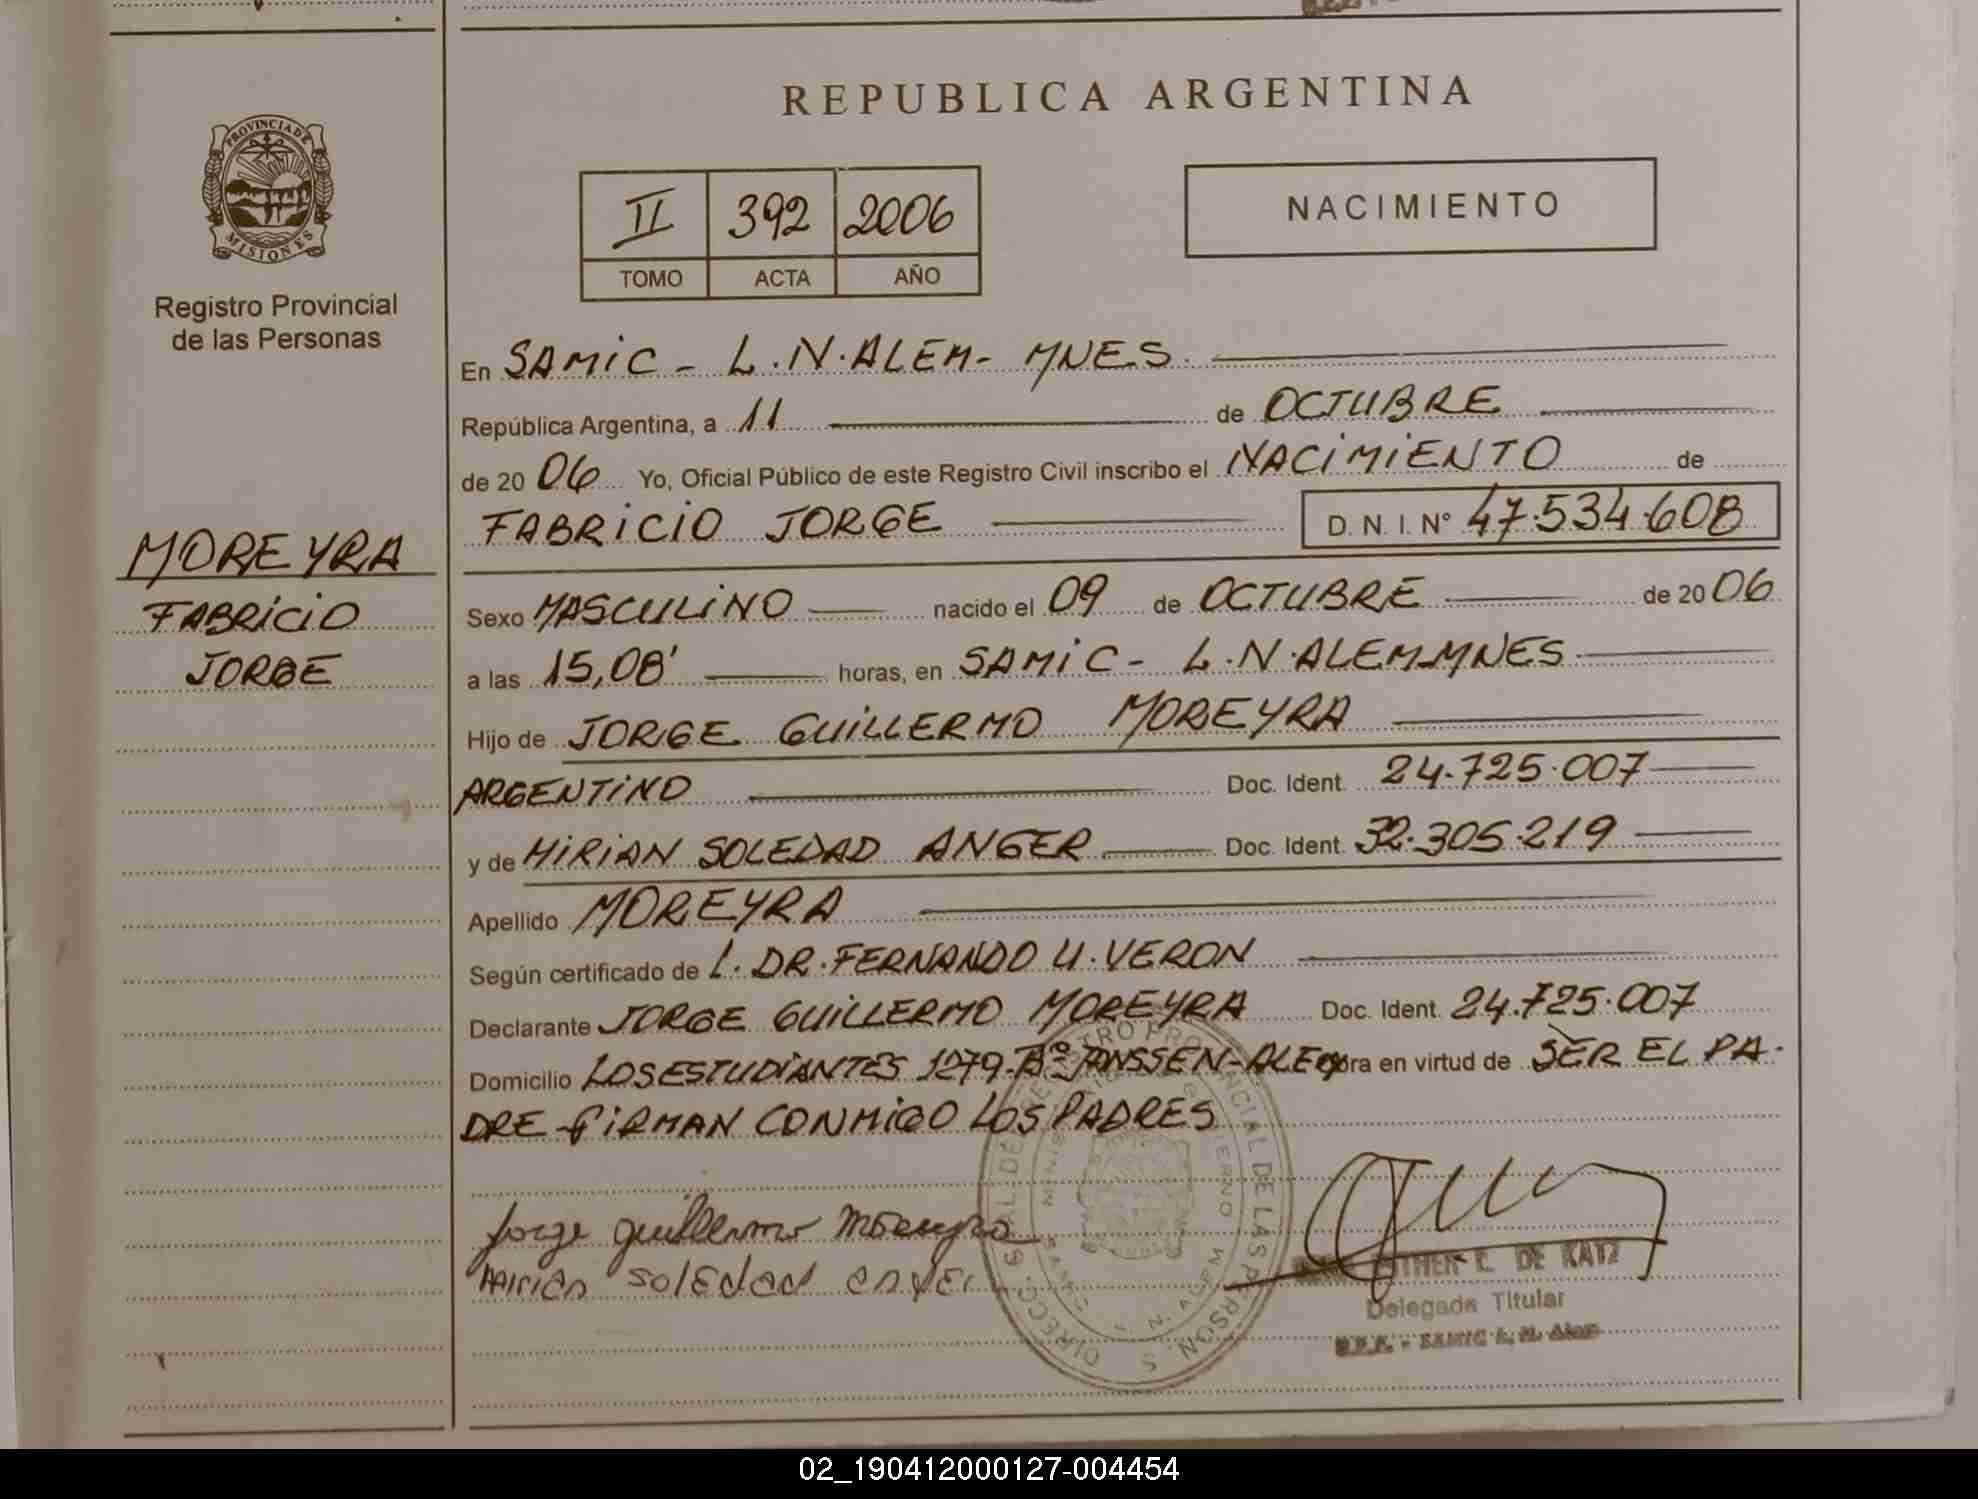 REPUBLICA ARGENTINA
PROVINCIA DE
MISIONES
Registro Provincial
de las Personas
II 392 2006
TOMO ACTA AÑO
NACIMIENTO
En SAMIC - L.N.ALEM- MNES.
República Argentina, a 11 de OCTUBRE
de 2006 Yo, Oficial Público de este Registro Civil inscribo el NACIMIENTO de
FABRICIO JORGE D. N. I. Nº 47.534.608
MOREYRA
FABRICIO
JORGE
Sexo MASCULINO nacido el 09 de OCTUBRE de 2006
a las 15,08' horas, en SAMIC - L.N.ALEM-MNES
Hijo de JORGE GUILLERMO MOREYRA
ARGENTINO Doc. Ident. 24.725.007
y de MIRIAN SOLEDAD ANGER Doc. Ident. 32.305.219
Apellido MOREYRA
Según certificado de L. DR. FERNANDO U. VERON
Declarante JORGE GUILLERMO MOREYRA Doc. Ident. 24.725.007
Domicilio LOS ESTUDIANTES 1279-Bº JANSSEN-ALEM obra en virtud de SER EL PA-
DRE - FIRMAN CONMIGO LOS PADRES
Jorge guillermo Moreyra
mirian soledad anger
C. DE KATZ
Delegada Titular
SAMIC L. N. Alem
02_190412000127-004454